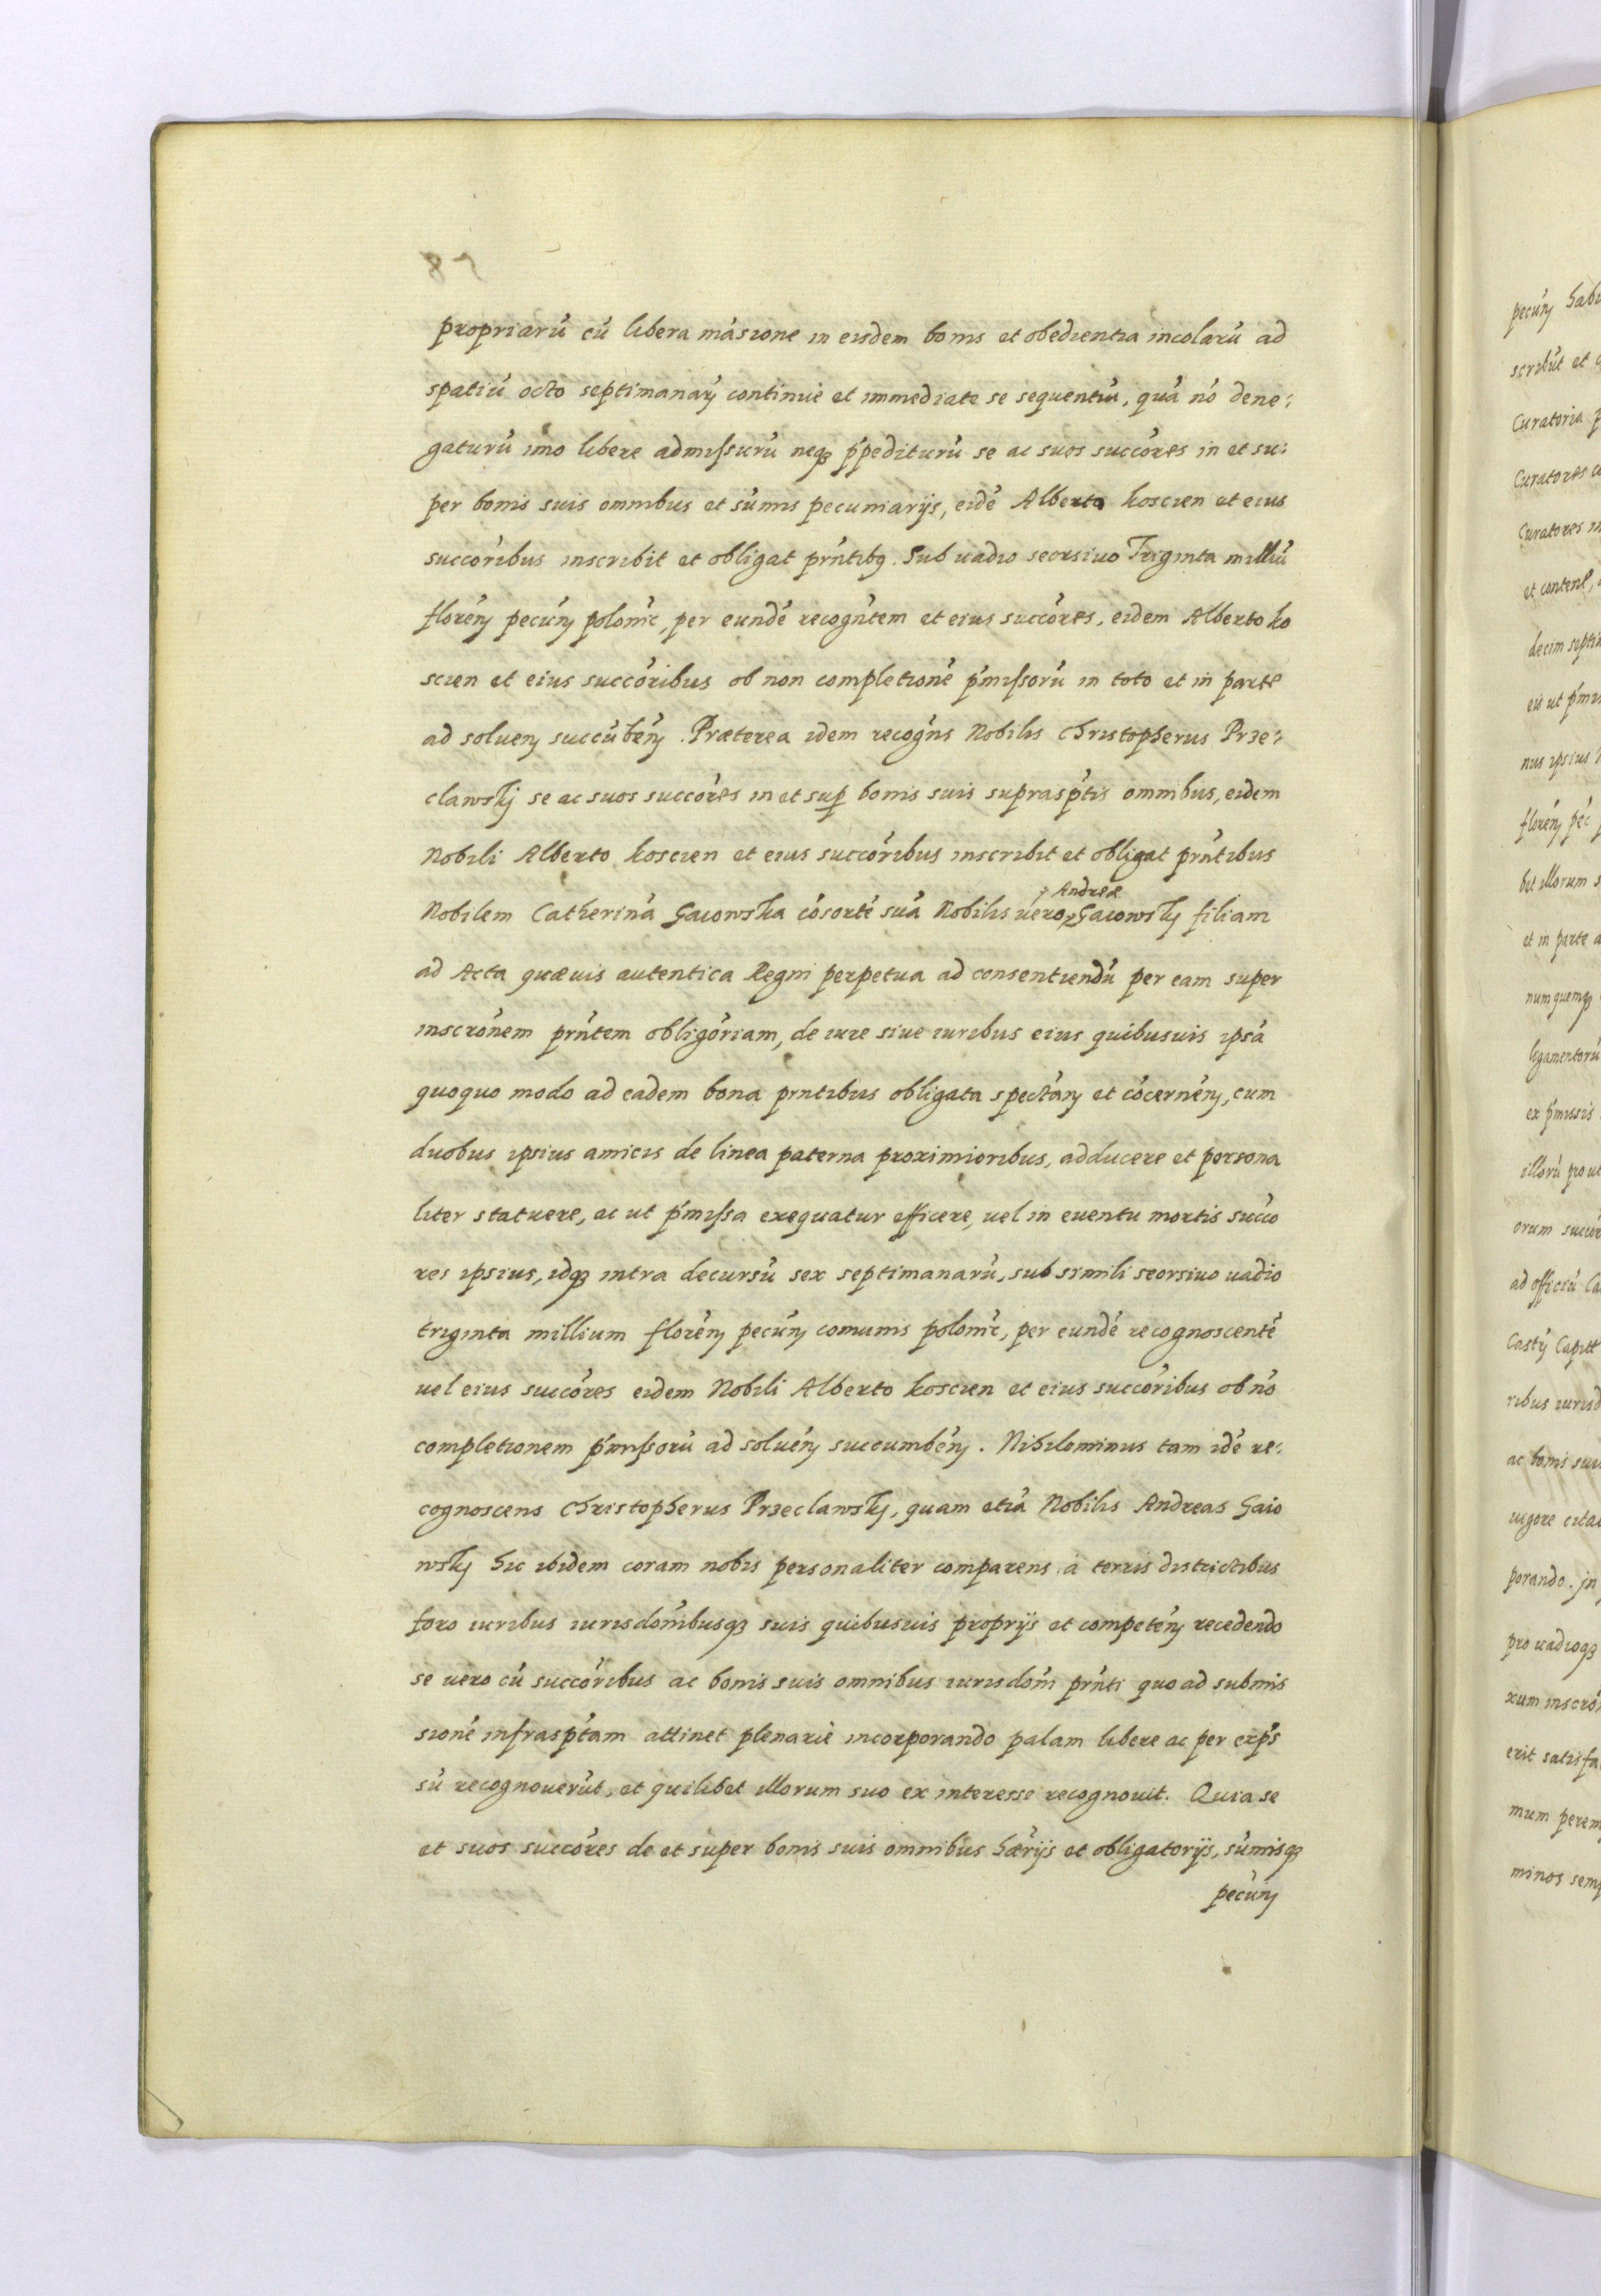 propriarũ cũ libera mãsione in eisdem bonis et obedientia incolarũ ad
spatiũ octo septimanarȷ continuè et immediate se sequentiũ, quã nõ dene:
gaturũ imo libere admissurũ neqȝ p̃peditururũ se ac suos succõres in et su:
per bonis suis omnibus et sũmis pecuniarijs, eidẽ Alberto Koscien et eius
succõribus inscribit et obligat prñtibȝ. Sub vadio seorsivo Triginta milliũ
florẽnȷ pecũnȷ polonic̃, per eundẽ recogñtem et eius succõres, eidem Alberto Ko
scien et eius succõribus ob non completionẽ p̃missorũ in toto et in parte
ad solvenȷ succũbẽnȷ. Præterea idem recogñs Nobilis Christopherus Prze:
clawskj se ac suos succõres in et sup̱ bonis suis suprasp̃tis omnibus, eidem
Nobili Alberto Koscien et eius succõribus inscribit et obligat prñtibus
Nobilem Catherinã Gaiowska cõsortẽ suã Nobilis vero Andreæ Gaiowskj filiam
ad Acta quævis autentica Regni perpetua ad consentiendũ per eam super
inscrõnem prñtem obligõriam, de iure sive iuribus eius quibusvis ipsã
quoquo modo ad eadem bona prntibus obligata spectãnȷ et cõcernẽnȷ, cum
duobus ipsius amicis de linea paterna proximioribus, adducere et persona
liter statuere, ac ut p̃missa exequatur efficere, vel in eventu mortis succõ
res ipsius, idqȝ intra decursũ sex septimanarũ, sub simili seorsivo vadio
triginta millium florẽnȷ pecũnȷ comunis polonic̃, per eundẽ recognoscentẽ
vel eius succõres eidem Nobili Alberto Koscien et eius succõribus ob nõ
completionem p̃missorũ ad solvẽnȷ succumbẽnȷ. Nihilominus tam idẽ re:
cognoscens Christopherus Przeclawskj, quam etiã Nobilis Andreas Gaio
wskj hic ibidem coram nobis personaliter comparens à terris districtibus
foro iuribus iurisdõnibusqȝ suis quibusvis proprijs et competẽnȷ recedendo
se vero cũ succõribus ac bonis suis omnibus iurisdõni prñti quo ad submis
sionẽ infrasp̃tam attinet plenariè incorporando palam libere ac per exp̃s
sũ recognoverũt, et quilibet illorum suo ex interesse recognovit. Quia se
et suos succõres de et super bonis suis omnibus hæ̃rijs et obligatorijs, sũmisqȝ
pecũnȷ